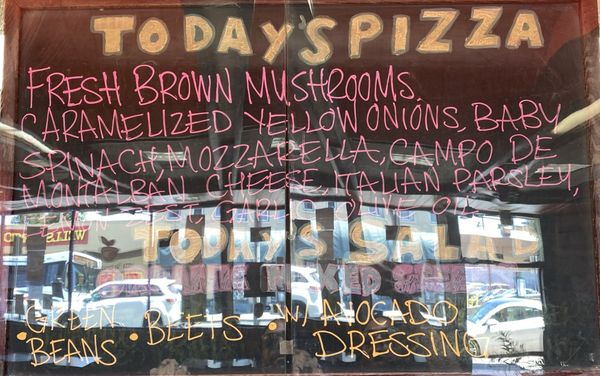 TODAY'S PIZZA
FRESH BROWN MUSHROOMS,
CARAMELIZED YELLOW ONIONS, BABY
SPINACH, MOZZARELLA, CAMPO DE
MONTALBAN CHEESE, ITALIAN PARSLEY,
LEMON ZEST, GARLIC OLIVE OIL
TODAY'S SALAD
MIXED
• GREEN BEANS • BEETS • W/ AVOCADO DRESSING